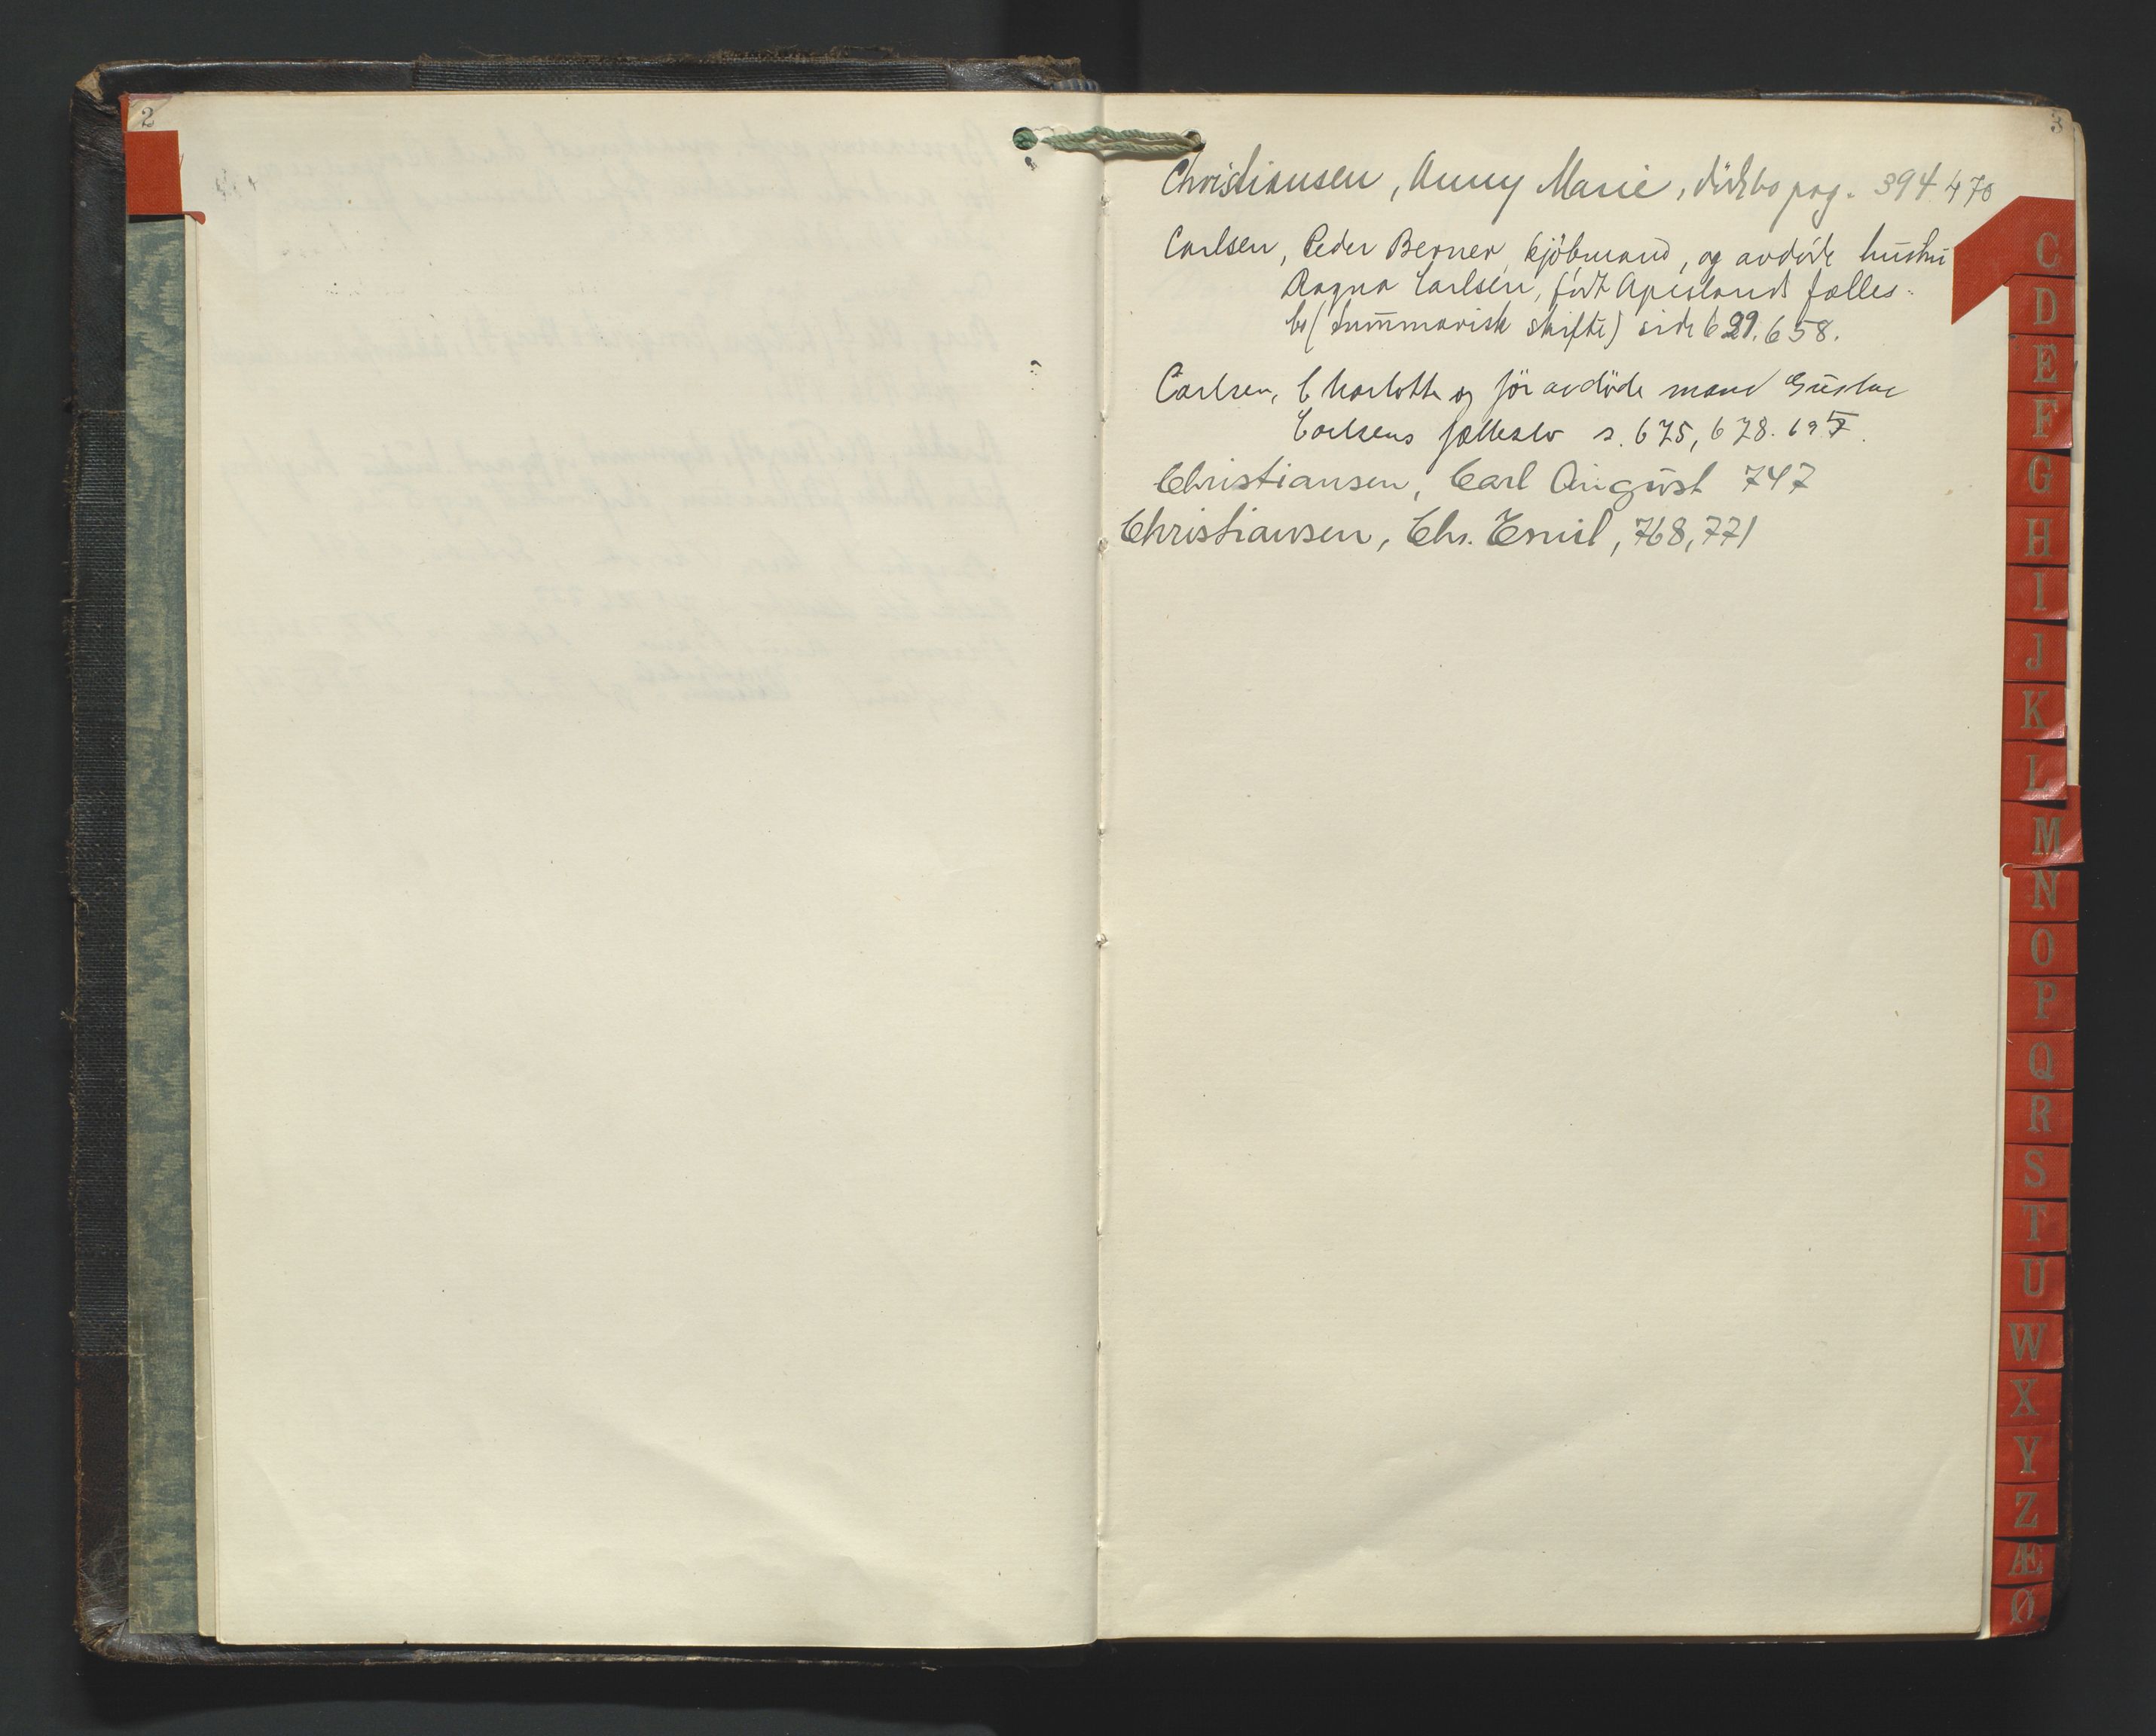 2
3
Christiansen, Anny Marie, dödsbo pag. 394. 470
Carlsen, Peder Berner, kjöbmand, og avdöde hustru
Ragna Carlsen, født Apeslands fælles-
bo (summarisk skifte) side 629. 658.
Carlsen, Charlotte og før avdöde mand Gustav
Carlsens fællesbo s. 675, 678. 697.
Christiansen, Carl August 747
Christiansen, Chr. Emil, 768, 771
C
D
E
F
G
H
I
J
K
L
M
N
O
P
Q
R
S
T
U
W
X
Y
Z
Æ
Ø